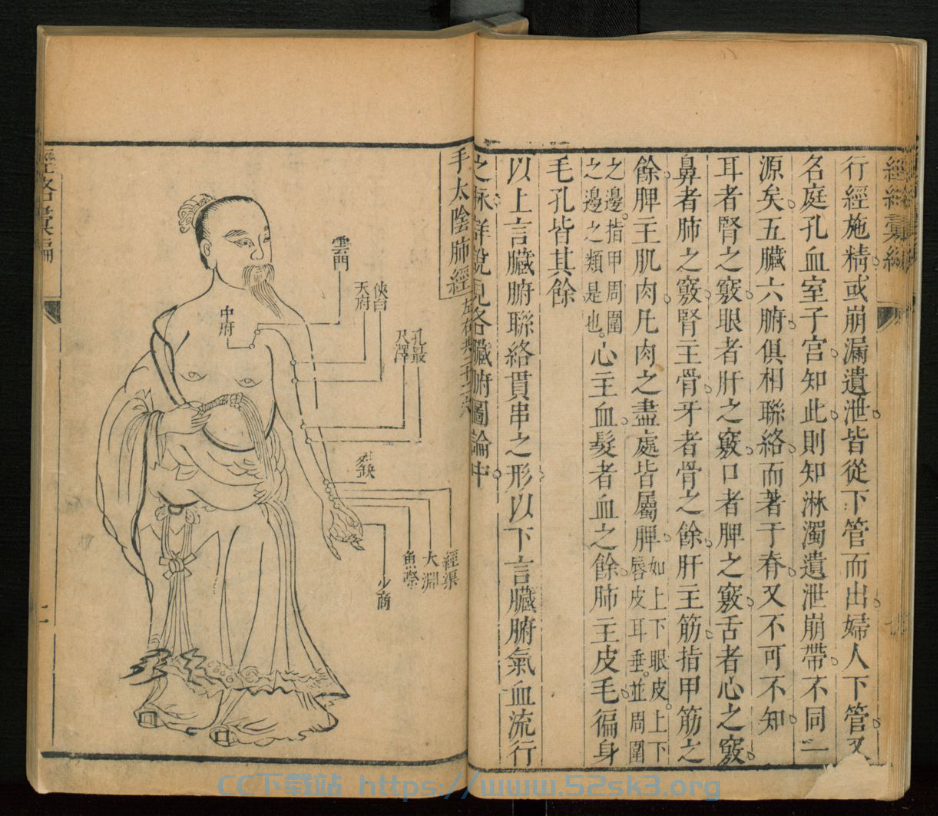 經絡彙編
行經施精或崩漏遺泄皆從下管而出婦人下管又
名庭孔血室子宮知此則知淋濁遺泄崩帶不同二
源矣五臟六腑俱相聯絡而著于脊又不可不知
耳者腎之竅眼者肝之竅口者脾之竅舌者心之竅
鼻者肺之竅腎主骨牙者骨之餘肝主筋指甲筋之
餘脾主肌肉凡肉之盡處皆屬脾如上下眼皮上下
唇皮耳垂並周圍
之邊指甲周圍
之邊之類是也心主血髮者血之餘肺主皮毛徧身
毛孔皆其餘
以上言臟腑聯絡貫串之形以下言臟腑氣血流行
之脉詳說見各臟腑圖論中
手太陰肺經左右共二十二穴
雲門
中府
俠白
天府
孔最
尺澤
列缺
經渠
太淵
魚際
少商
經絡彙編
CC下载站 https://www.52sk3.org